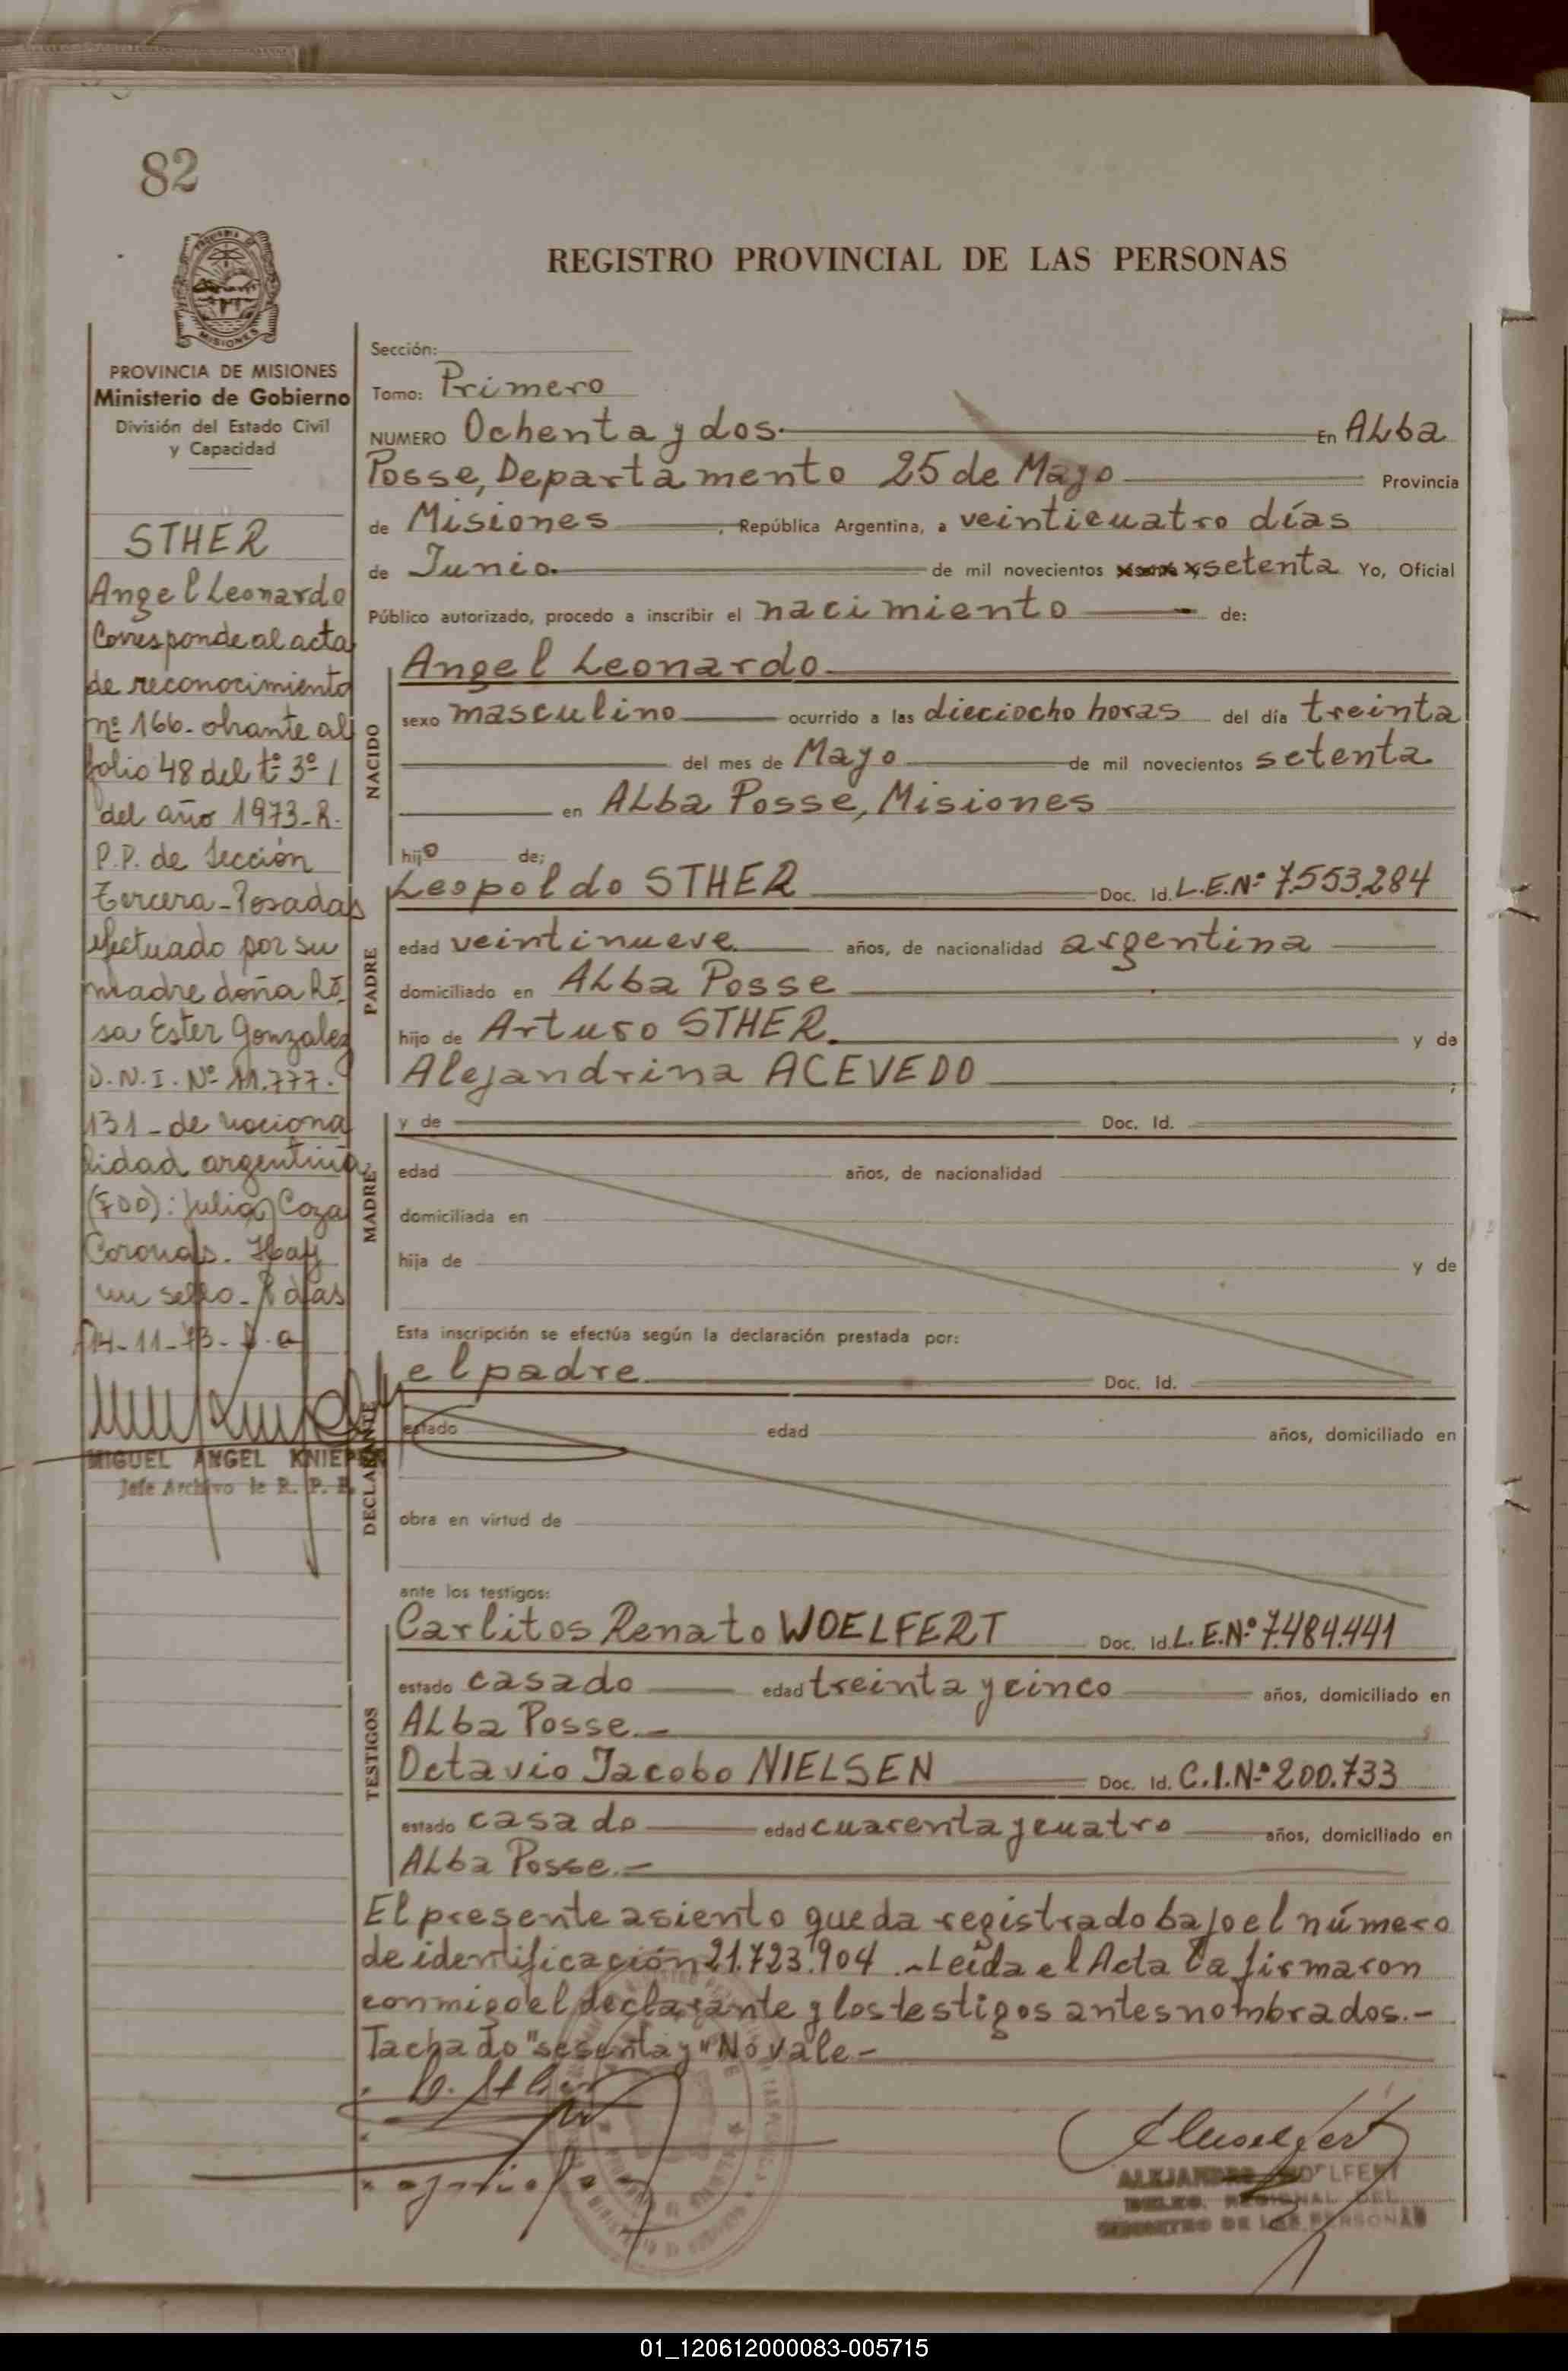 82
MISIONES
REGISTRO PROVINCIAL DE LAS PERSONAS
PROVINCIA DE MISIONES
Ministerio de Gobierno
División del Estado Civil
y Capacidad
STHER
Angel Leonardo
Corresponde al acta
de reconocimiento
nº 166. obrante al
folio 48 del tº 3º
del año 1973-R.
P.P. de Sección
tercera-Posadas
efectuado por su
madre doña Ro-
sa Ester Gonzalez
D.N.I. Nº 11.777.
131-de naciona
lidad argentina
(FDO): Julia Coza
Coronas. Hay
un sello-
14-11-73-
MIGUEL ANGEL KNIEPER
Jefe Archivo de R. P. P.
Sección:
Tomo: Primero
NUMERO Ochenta y dos. En ALba
Posse, Departamento 25 de Mayo Provincia
de Misiones, República Argentina, a veinticuatro días
de Junio. de mil novecientos setenta Yo, Oficial
Público autorizado, procedo a inscribir el nacimiento de:
NACIDO
Angel Leonardo
sexo masculino ocurrido a las dieciocho horas del día treinta
del mes de Mayo de mil novecientos setenta
en ALba Posse, Misiones
hijo de;
PADRE
Leopoldo STHER Doc. Id. L.E.Nº 7.553.284
edad veintinueve años, de nacionalidad argentina
domiciliado en ALba Posse
hijo de Arturo STHER. y de
Alejandrina ACEVEDO ;
MADRE
y de Doc. Id.
edad años, de nacionalidad
domiciliada en
hija de y de
Esta inscripción se efectúa según la declaración prestada por:
DECLARANTE
el padre Doc. Id.
estado edad años, domiciliado en
obra en virtud de
ante los testigos:
TESTIGOS
Carlitos Renato WOELFERT Doc. Id. L.E.Nº 7.484.441
estado casado edad treinta y cinco años, domiciliado en
ALba Posse.-
Octavio Jacobo NIELSEN Doc. Id. C.I.Nº 200.733
estado casado edad cuarenta y cuatro años, domiciliado en
ALba Posse.-
El presente asiento queda registrado bajo el número
de identificación 21.723.904.-Leída el Acta la firmaron
conmigo el declarante y los testigos antes nombrados.-
Tachado "sesenta y" No vale-
L. Sther
ALEJANDRO WOELFERT
DELEG. REGIONAL DEL
REGISTRO DE LAS PERSONAS
01_120612000083-005715